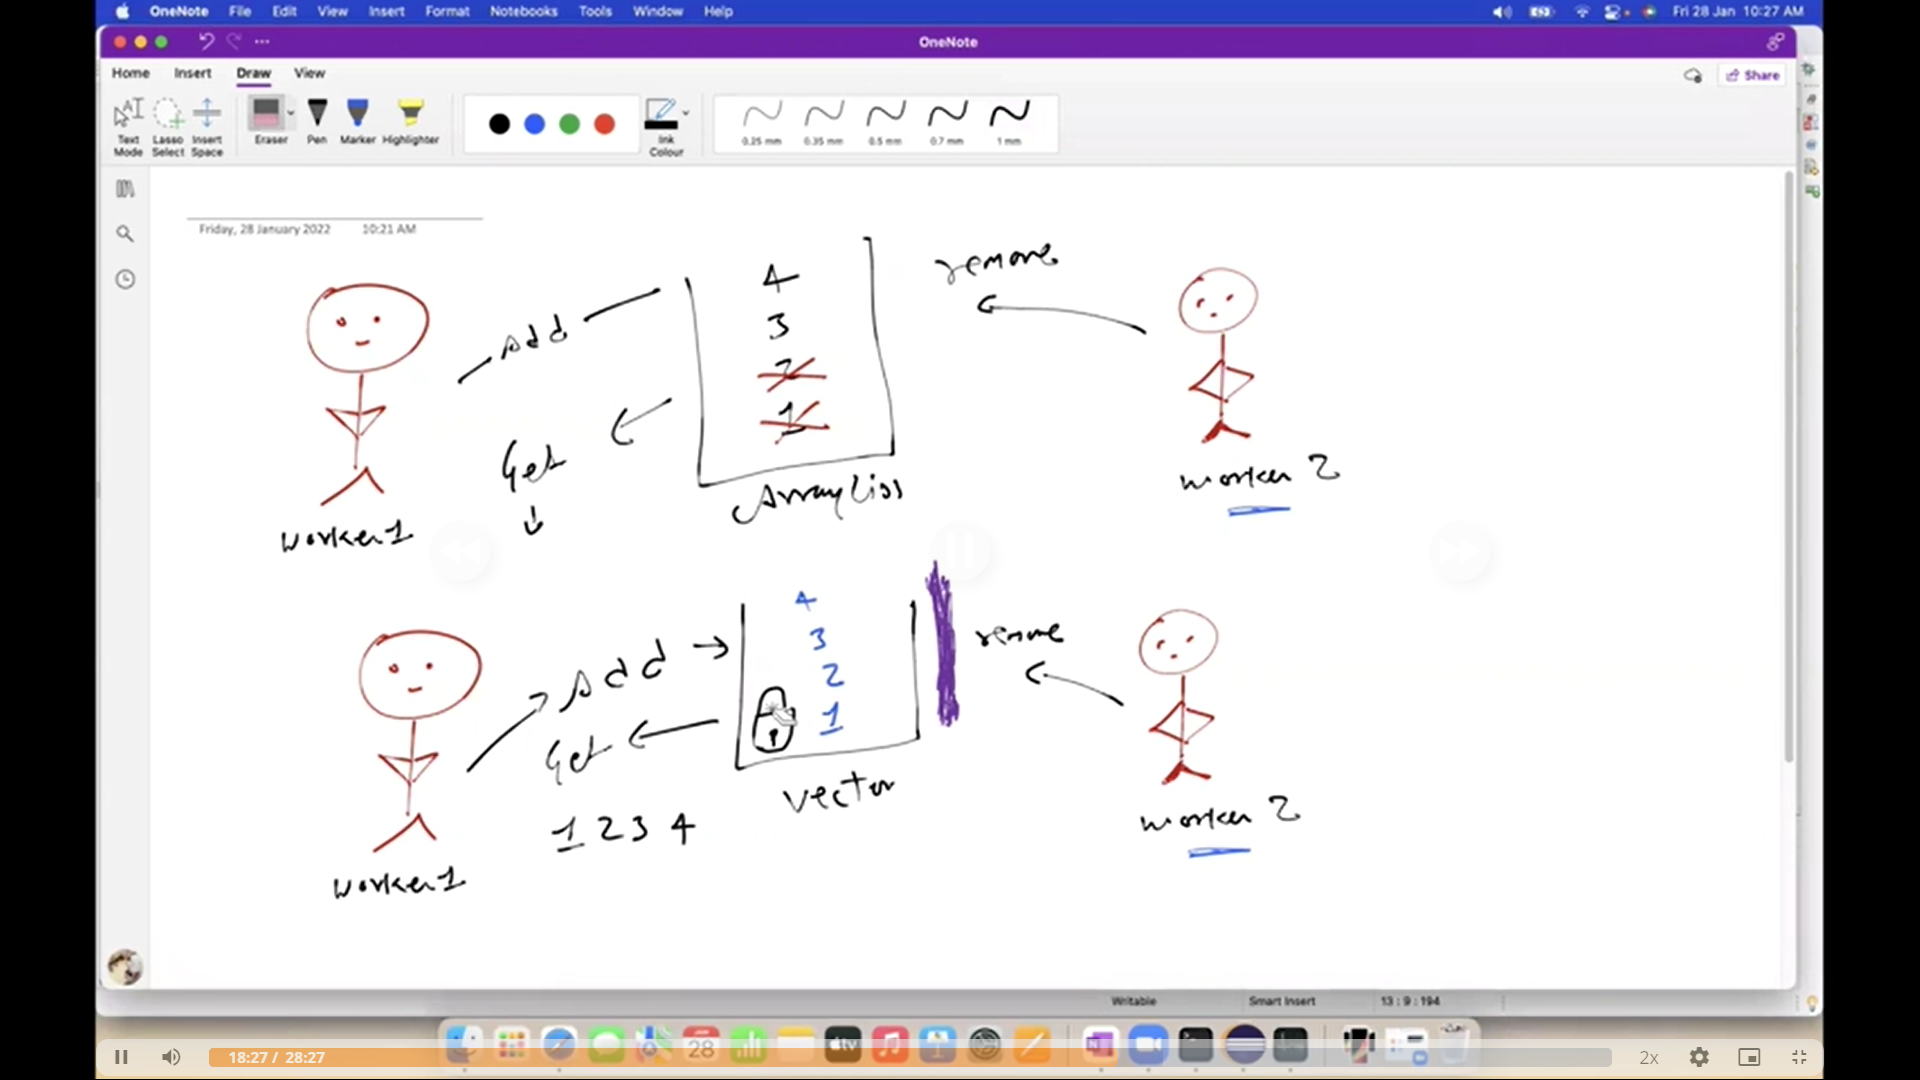 OneNote File Edit View Insert Format Notebooks Tools Window Help Fri 28 Jan 10:27 AM
OneNote
Home Insert Draw View
Share
Text Mode
Lasso Select
Insert Space
Eraser
Pen
Marker
Highlighter
Ink Colour
0.25 mm 0.35 mm 0.5 mm 0.7 mm 1 mm
Friday, 28 January 2022 10:21 AM
4
3
2
1
Add
Get
remove
worker 1
worker 2
4
3
2
1
Add
Get
remove
vector
1 2 3 4
worker 1
worker 2
Writable Smart Insert 13 : 9 : 194
28
tv
18:27 / 28:27
2x